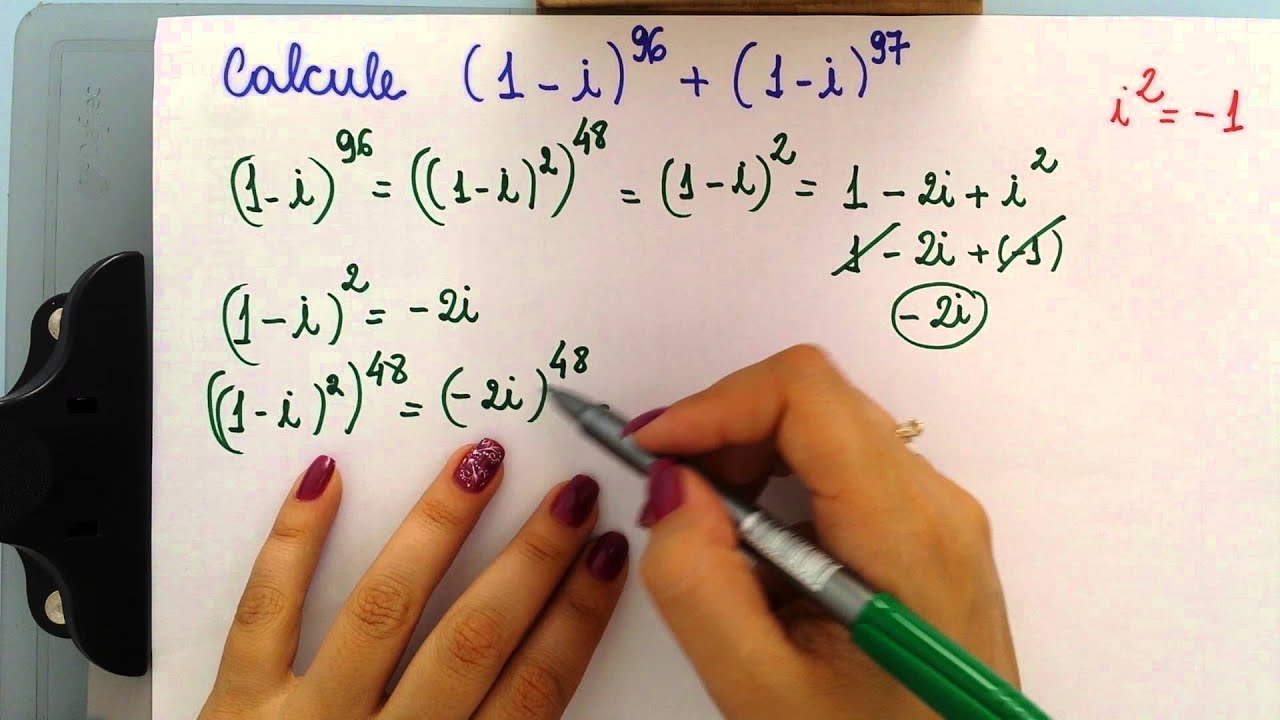 Calcule (1-i)^96 + (1-i)^97
i^2 = -1
(1-i)^96 = ((1-i)^2)^48 = (1-i)^2 = 1 - 2i + i^2
1 - 2i + (-1)
(1-i)^2 = -2i
-2i
((1-i)^2)^48 = (-2i)^48 =